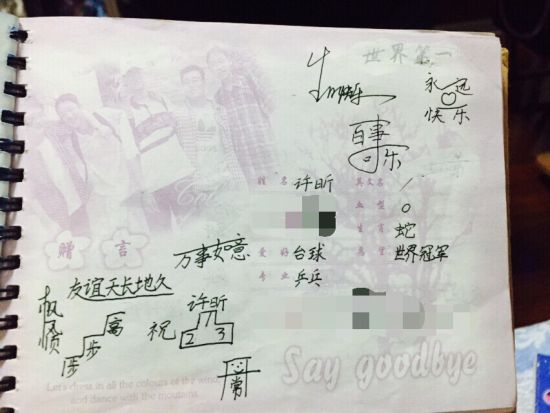 世界第一
生日快乐
永远
快乐
百事
可乐
姓名 许昕 英文名 /
血型 O
生肖 蛇
爱好 台球 世界冠军
专业 乒乓
赠言
万事如意
友谊天长地久
步步高
祝
许昕
2 3
常
Say goodbye
Let's dress in all the colours of the wind,
and dance with the moutains